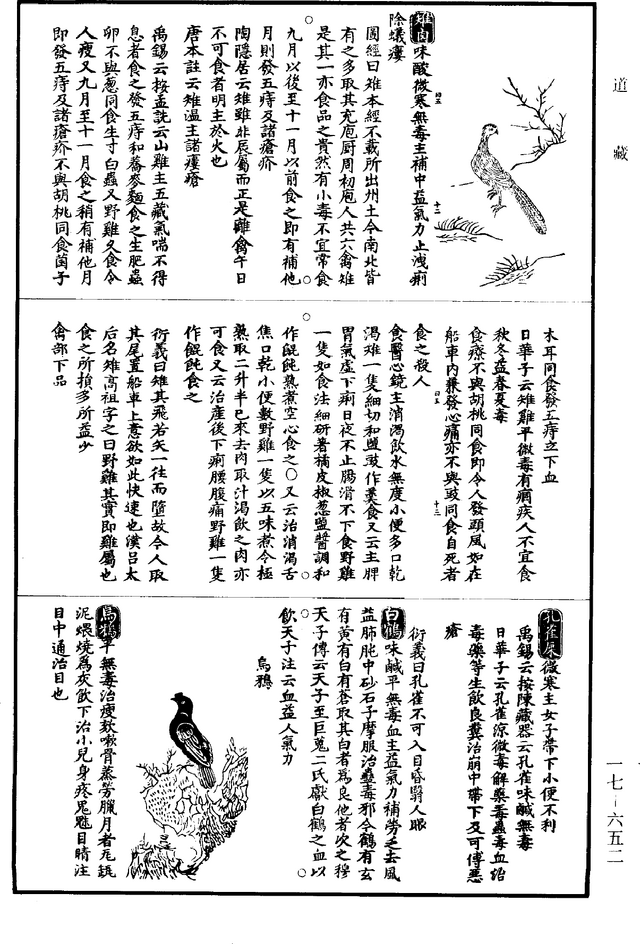 道藏
雉肉味酸微寒無毒主補中益氣力止洩痢
除蟻瘻
圖經曰雉本經不載所出州土今南北皆
有之多取其充庖厨周礼庖人共六禽雉
是其一亦食品之貴然有小毒不宜常食
九月以後至十一月以前食之即有補他
月則發五痔及諸瘡疥
陶隱居云雉雖非辰屬而正是離禽午日
不可食者明主於火也
唐本註云雉温主諸瘻瘡
禹錫云按孟詵云山雞主五藏氣喘不得
息者食之發五痔和蕎麥麵食之生肥蟲
卵不與葱同食生寸白蟲又野雞久食令
人瘦又九月至十一月食之稍有補他月
即發五痔及諸瘡疥不與胡桃同食菌子
木耳同食發五痔立下血
日華子云雉雞平微毒有痼疾人不宜食
秋冬益春夏毒
食療不與胡桃同食即令人發頭風如在
船車內兼發心痛亦不與豉同食自死者
食之殺人
食醫心鏡主消渴飲水無度小便多口乾
渴雉一隻細切和鹽豉作羹食又云主脾
胃氣虛下痢日夜不止腸滑不下食野雞
一隻如食法細研著橘皮椒葱鹽醬調和
作餛飩熟煮空心食之○又云治消渴舌
焦口乾小便數野雞一隻以五味煮令極
熟取二升半已來去肉取汁渴飲之肉亦
可食又云治產後下痢腰腹痛野雞一隻
作餛飩食之
衍義曰雉其飛若矢一往而墮故今人取
其尾置船車上意欲如此快速也漢吕太
后名雉高祖字之曰野雞其實即雞屬也
食之所損多所益少
禽部下品
孔雀屎微寒主女子帶下小便不利
禹錫云按陳藏器云孔雀味鹹無毒
日華子云孔雀涼微毒解藥毒蠱毒血治
毒藥等生飲良糞治崩中帶下及可傅惡
瘡
衍義曰孔雀不可入目昏翳人眼
白鶴味鹹平無毒血主益氣力補勞乏去風
益肺肫中砂石子摩服治蠱毒邪今鶴有玄
有黄有白有蒼取其白者為良他者次之穆
天子傳云天子至巨蒐二氏獻白鶴之血以
飲天子注云血益人氣力
烏鴉
烏鴉平無毒治瘦欬嗽骨蒸勞臘月者瓦缻
泥煨燒為灰飲下治小兒身疼鬼魅目睛注
目中通治目也
一七-六五二